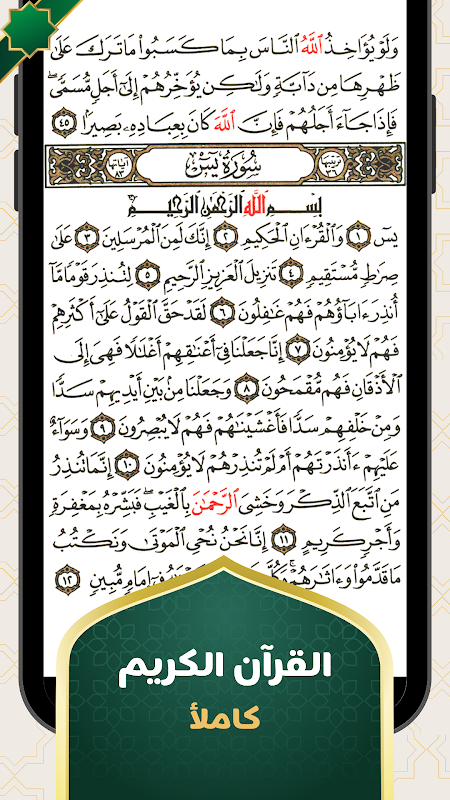 وَلَوْ يُؤَاخِذُ ٱللَّهُ ٱلنَّاسَ بِمَا كَسَبُوا۟ مَا تَرَكَ عَلَىٰ
ظَهْرِهَا مِن دَآبَّةٍ وَلَٰكِن يُؤَخِّرُهُمْ إِلَىٰٓ أَجَلٍ مُّسَمًّى ۖ
فَإِذَا جَآءَ أَجَلُهُمْ فَإِنَّ ٱللَّهَ كَانَ بِعِبَادِهِۦ بَصِيرًۢا ٤٥
ترتيبها ٣٦ سُورَةُ يسٓ آياتها ٨٣
بِسْمِ ٱللَّهِ ٱلرَّحْمَٰنِ ٱلرَّحِيمِ
يسٓ ١ وَٱلْقُرْءَانِ ٱلْحَكِيمِ ٢ إِنَّكَ لَمِنَ ٱلْمُرْسَلِينَ ٣ عَلَىٰ
صِرَٰطٍ مُّسْتَقِيمٍ ٤ تَنزِيلَ ٱلْعَزِيزِ ٱلرَّحِيمِ ٥ لِتُنذِرَ قَوْمًا مَّآ
أُنذِرَ ءَابَآؤُهُمْ فَهُمْ غَٰفِلُونَ ٦ لَقَدْ حَقَّ ٱلْقَوْلُ عَلَىٰٓ أَكْثَرِهِمْ
فَهُمْ لَا يُؤْمِنُونَ ٧ إِنَّا جَعَلْنَا فِىٓ أَعْنَٰقِهِمْ أَغْلَٰلًا فَهِىَ إِلَى
ٱلْأَذْقَانِ فَهُم مُّقْمَحُونَ ٨ وَجَعَلْنَا مِنۢ بَيْنِ أَيْدِيهِمْ سَدًّا
وَمِنْ خَلْفِهِمْ سَدًّا فَأَغْشَيْنَٰهُمْ فَهُمْ لَا يُبْصِرُونَ ٩ وَسَوَآءٌ
عَلَيْهِمْ ءَأَنذَرْتَهُمْ أَمْ لَمْ تُنذِرْهُمْ لَا يُؤْمِنُونَ ١٠ إِنَّمَا تُنذِرُ
مَنِ ٱتَّبَعَ ٱلذِّكْرَ وَخَشِىَ ٱلرَّحْمَٰنَ بِٱلْغَيْبِ ۖ فَبَشِّرْهُ بِمَغْفِرَةٍ
وَأَجْرٍ كَرِيمٍ ١١ إِنَّا نَحْنُ نُحْىِ ٱلْمَوْتَىٰ وَنَكْتُبُ
مَا قَدَّمُوا۟ وَءَاثَٰرَهُمْ ۚ وَكُلَّ فِىٓ إِمَامٍ مُّبِينٍ ١٢
القرآن الكريم
كاملاً